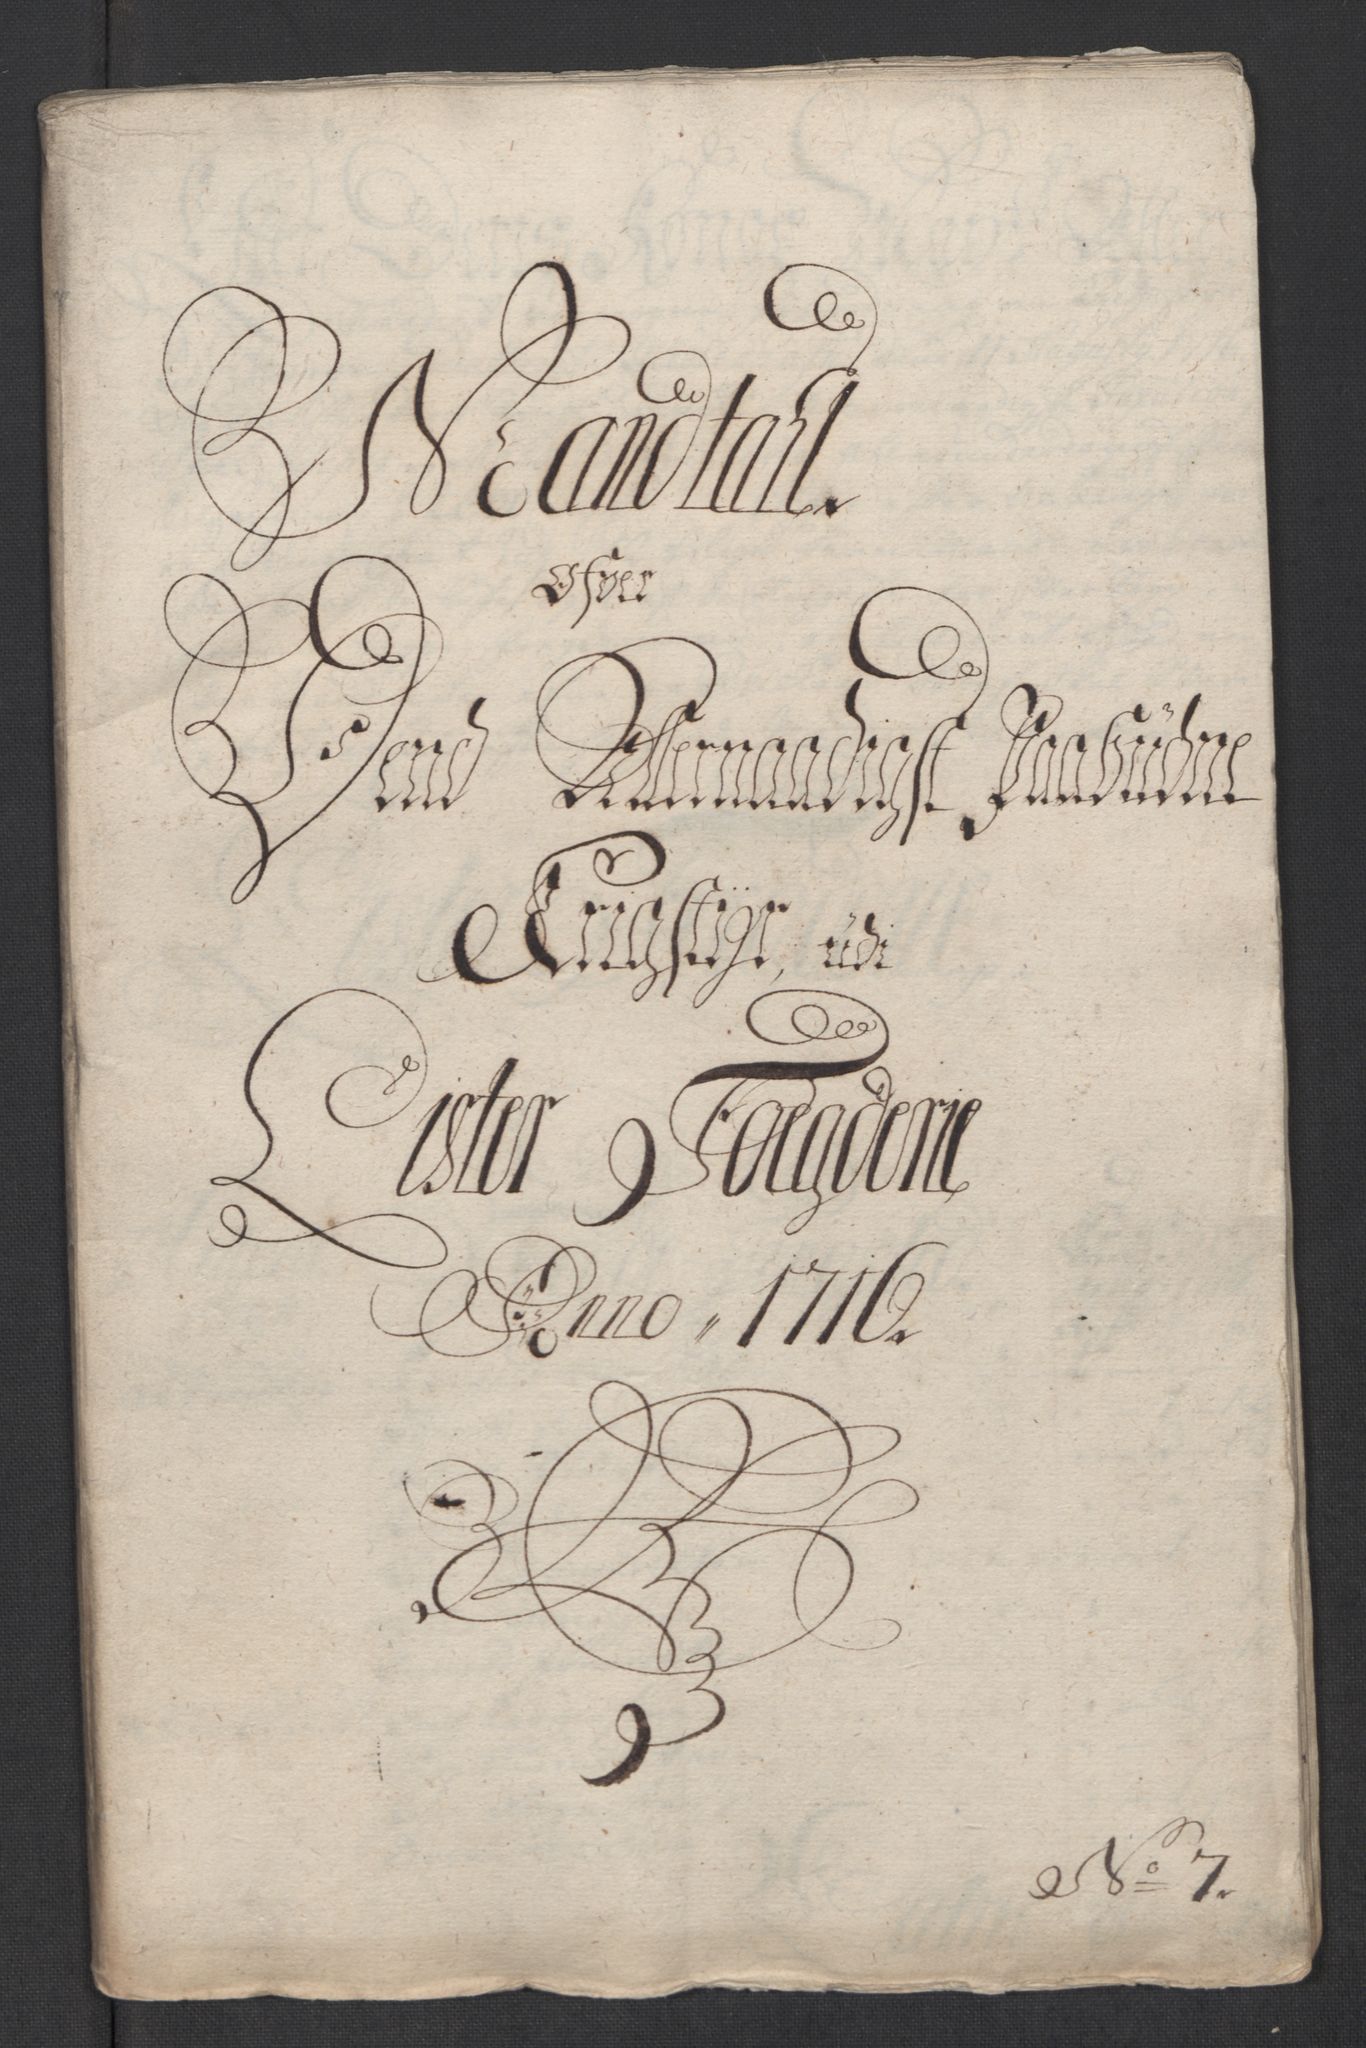 Mandtahl.
Ofver
Dend Allernaadigst Paabudne
Krigstyhr, udi
Lister Foegderie
Anno " 1716.
No 7.